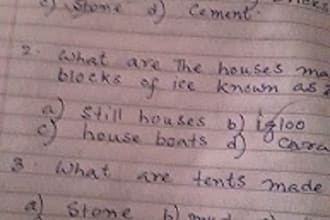 c) Stone d) Cement.
2. What are the houses ma
blocks of ice known as
a) Still houses b) igloo
c) house boats d) Cara
3. What are tents made
a) Stone b) mud